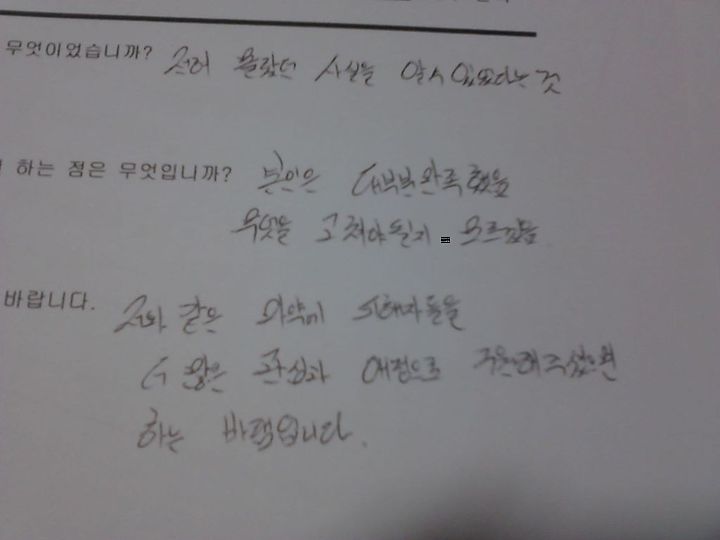 무엇이었습니까? 전혀 몰랐던 사실을 알수 있었다는 것
하는 점은 무엇입니까? 본인은 대부분 만족했음
무엇을 고쳐야 될지 모르겠음
바랍니다. 저와 같은 의약계 피해자들을
더 많은 관심과 애정으로 구원해주셨으면
하는 바램입니다.